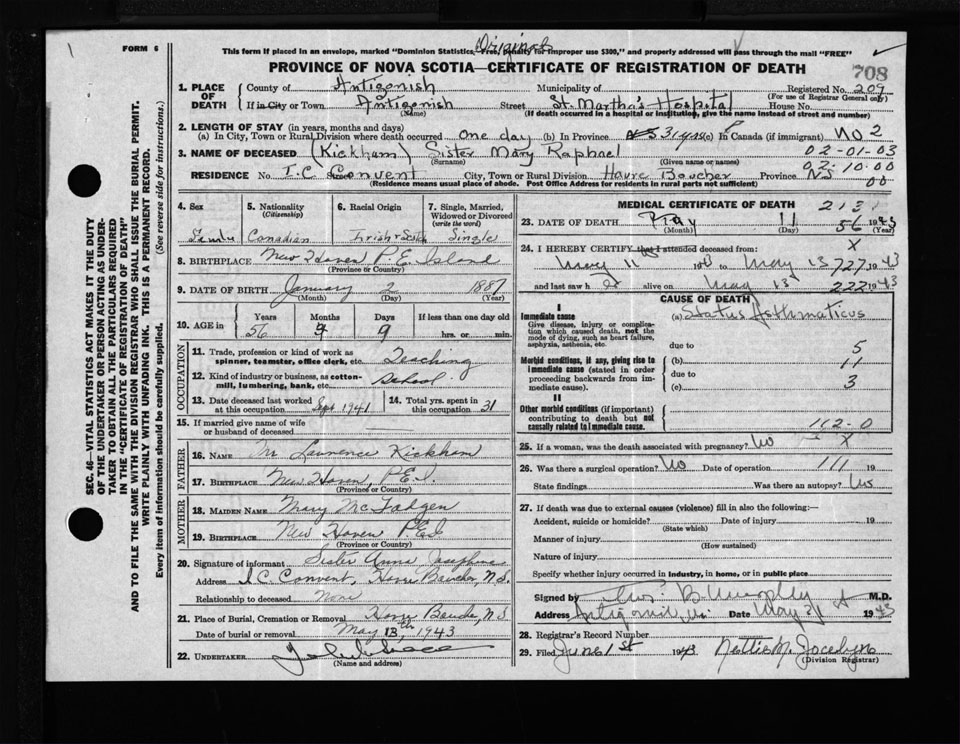 FORM 6
Original
This form if placed in an envelope, marked "Dominion Statistics, Free, Penalty for improper use $300," and properly addressed will pass through the mail "FREE"
PROVINCE OF NOVA SCOTIA—CERTIFICATE OF REGISTRATION OF DEATH
708
1. PLACE OF DEATH
County of Antigonish Municipality of Registered No. 209
(For use of Registrar General only)
If in City or Town Antigonish Street St. Martha's Hospital House No.
(Name) (If death occurred in a hospital or institution, give the name instead of street and number)
2. LENGTH OF STAY (in years, months and days)
(a) In City, Town or Rural Division where death occurred one day (b) In Province NS 31 yrs (c) In Canada (if immigrant) No 2
02-01-03
3. NAME OF DECEASED (Kickham) Sister Mary Raphael
(Surname) (Given name or names)
02-10-00
RESIDENCE No. I.C. Street Convent City, Town or Rural Division Havre Boucher Province NS
00
(Residence means usual place of abode. Post Office Address for residents in rural parts not sufficient)
4. Sex
Female
5. Nationality (Citizenship)
Canadian
6. Racial Origin
Irish & Scotch
7. Single, Married, Widowed or Divorced (write the word)
Single
8. BIRTHPLACE New Haven P.E. Island
(Province or Country)
9. DATE OF BIRTH January 2 1887
(Month) (Day) (Year)
10. AGE in Years Months Days If less than one day old
56 4 9 hrs. or min.
OCCUPATION
11. Trade, profession or kind of work as spinner, teamster, office clerk, etc. Teaching
12. Kind of industry or business, as cotton-mill, lumbering, bank, etc. School
13. Date deceased last worked at this occupation Sept 1941
14. Total yrs. spent in this occupation 31
15. If married give name of wife or husband of deceased
FATHER
16. NAME Mr Lawrence Kickham
17. BIRTHPLACE New Haven, P.E.I.
(Province or Country)
MOTHER
18. MAIDEN NAME Mary McFadgen
19. BIRTHPLACE New Haven P.E.I
(Province or Country)
20. Signature of informant Sister Anna Josephine
Address I.C. Convent, Havre Boucher, N.S.
Relationship to deceased None
21. Place of Burial, Cremation or Removal Havre Boucher, N.S
Date of burial or removal May 13th, 1943
22. UNDERTAKER
(Name and address)
MEDICAL CERTIFICATE OF DEATH
213
23. DATE OF DEATH May 11 56 1943
(Month) (Day) (Year)
24. I HEREBY CERTIFY that I attended deceased from: X
May 11th 1943 to May 13 727 1943
and last saw h alive on May 13 222 1943
CAUSE OF DEATH
Immediate cause
Give disease, injury or complication which caused death, not the mode of dying, such as heart failure, asphyxia, asthenia, etc.
(a) Status Asthmaticus
due to 5
Morbid conditions, if any, giving rise to immediate cause (stated in order proceeding backwards from immediate cause).
(b) 11
due to
(c) 3
II
Other morbid conditions (if important) contributing to death but not causally related to immediate cause.
112-0
25. If a woman, was the death associated with pregnancy? No X
26. Was there a surgical operation? No Date of operation 111 19
State findings Was there an autopsy? No
27. If death was due to external causes (violence) fill in also the following:—
Accident, suicide or homicide? Date of injury 19
(State which)
Manner of injury
(How sustained)
Nature of injury
Specify whether injury occurred in industry, in home, or in public place
Signed by Murphy M.D.
Address Antigonish, N.S. Date May 21 1943
28. Registrar's Record Number
29. Filed June 1st 1943 Nettie M. Jocelyne
(Division Registrar)
SEC. 46—VITAL STATISTICS ACT MAKES IT THE DUTY
OF THE UNDERTAKER OR PERSON ACTING AS UNDER-
TAKER TO OBTAIN ALL THE PARTICULARS REQUIRED
IN THE "CERTIFICATE OF REGISTRATION OF DEATH"
AND TO FILE THE SAME WITH THE DIVISION REGISTRAR WHO SHALL ISSUE THE BURIAL PERMIT.
WRITE PLAINLY WITH UNFADING INK. THIS IS A PERMANENT RECORD.
Every item of information should be carefully supplied. (See reverse side for instructions.)